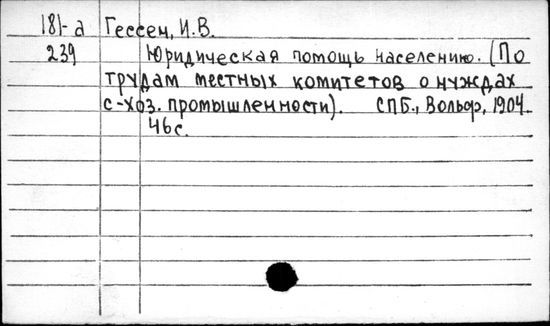 181-а Гессен, И.В.
239 Юридическая помощь населению. (По
трудам местных комитетов о нуждах
с-хоз. промышленности). СПБ., Вольф, 1904.
46с.